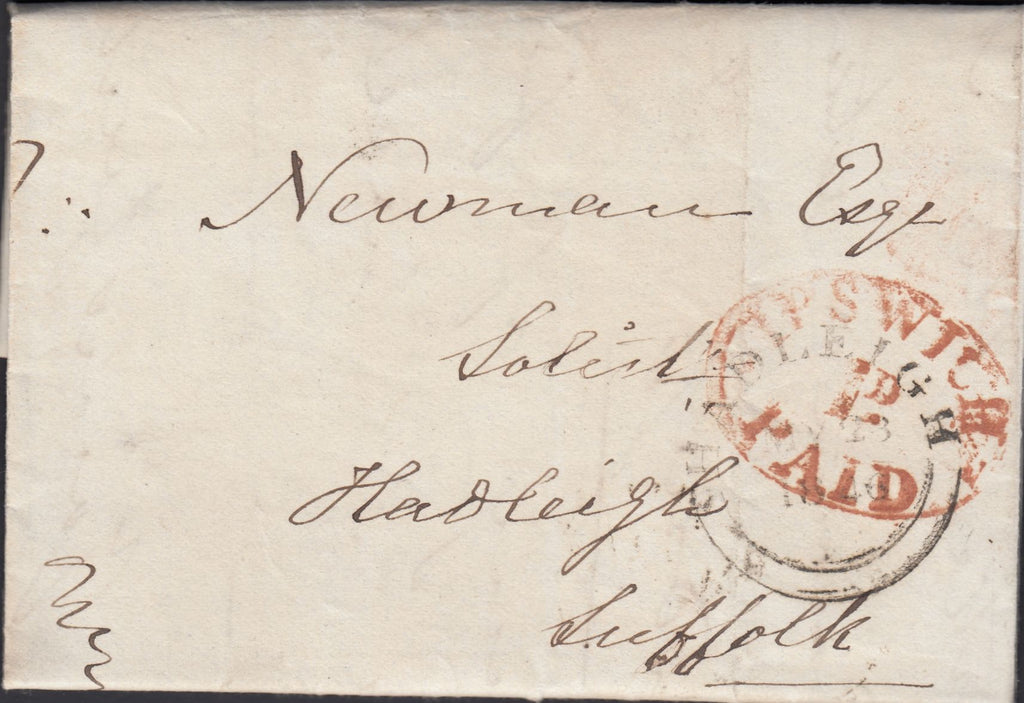 Newman Esqr
Solicit
Hadleigh
Suffolk
IPSWICH
1D
PAID
HADLEIGH